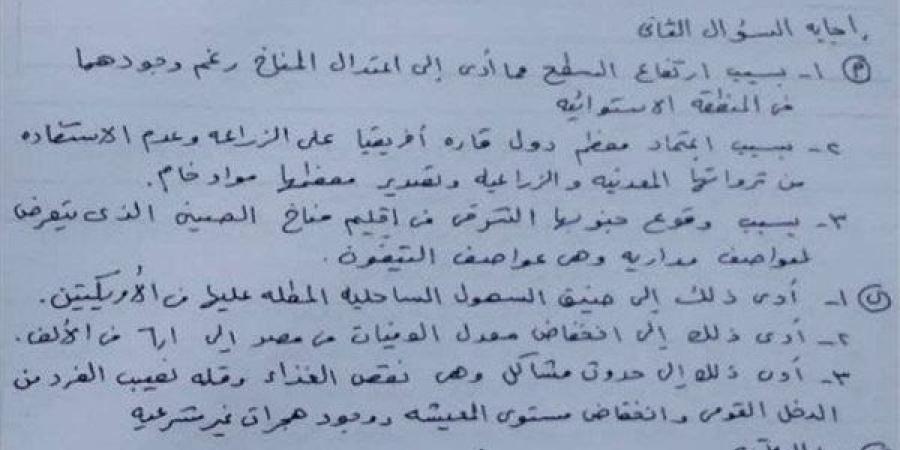 إجابه السؤال الثانى
(٣) ١- بسبب ارتفاع السطح مما أدى إلى اعتدال المناخ رغم وجودهما
فى المنطقه الاستوائيه
٢- بسبب اعتماد معظم دول قاره أفريقيا على الزراعه وعدم الاستفاده
من ثرواتها المعدنيه والزراعيه وتصدير معظمها مواد خام.
٣- بسبب وقوع جنوبها الشرقى فى إقليم مناخ الصينى الذى يتعرض
لعواصف مداريه وهى عواصف التيفون.
١- أدى ذلك إلى ضيق السهول الساحليه المطله عليها فى الأمريكيتين.
٢- أدى ذلك إلى انخفاض معدل الوفيات فى مصر إلى ٦,١ فى الألف.
٣- أدى ذلك إلى حدوث مشاكل وهى نقص الغذاء وقله نصيب الفرد من
الدخل القومى وانخفاض مستوى المعيشه ووجود هجرات غير شرعيه